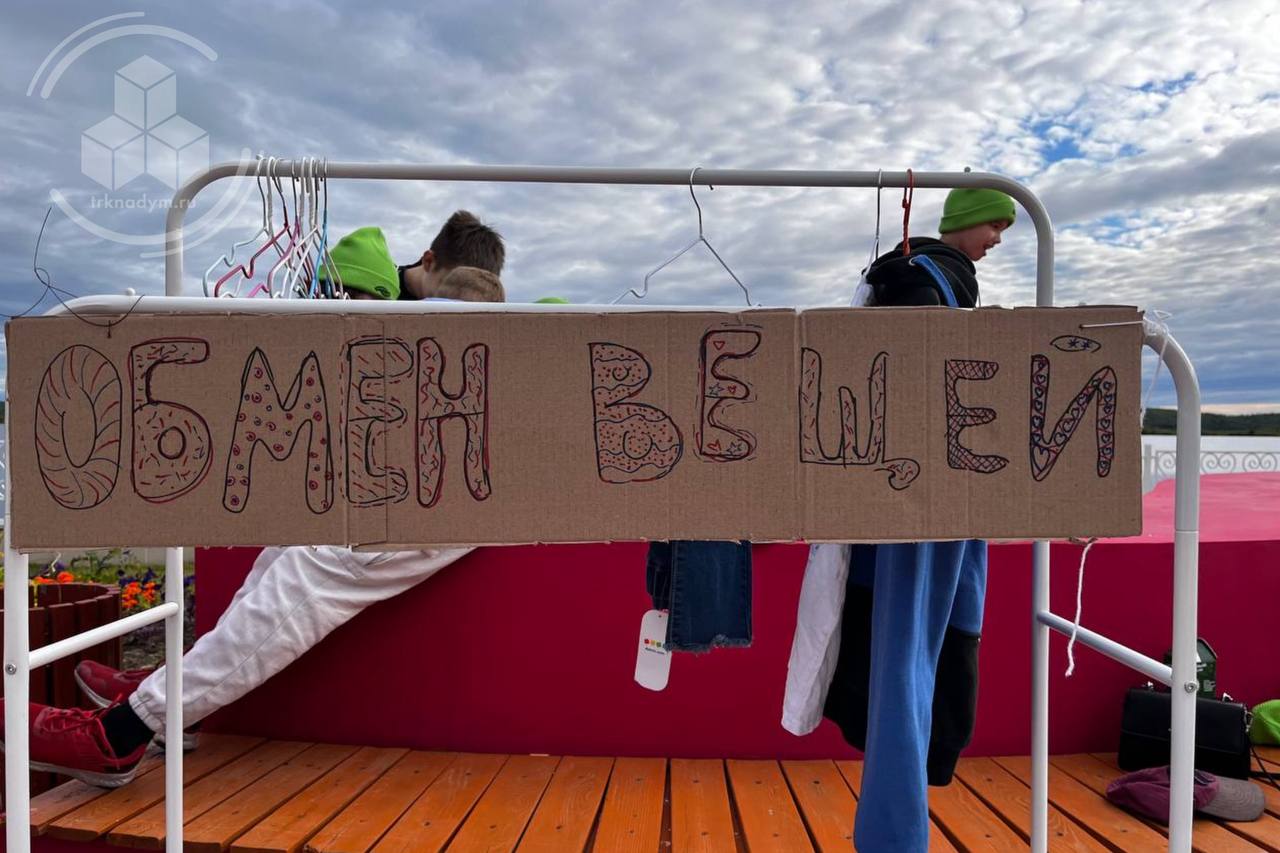 trknadym.ru
ОБМЕН ВЕЩЕЙ